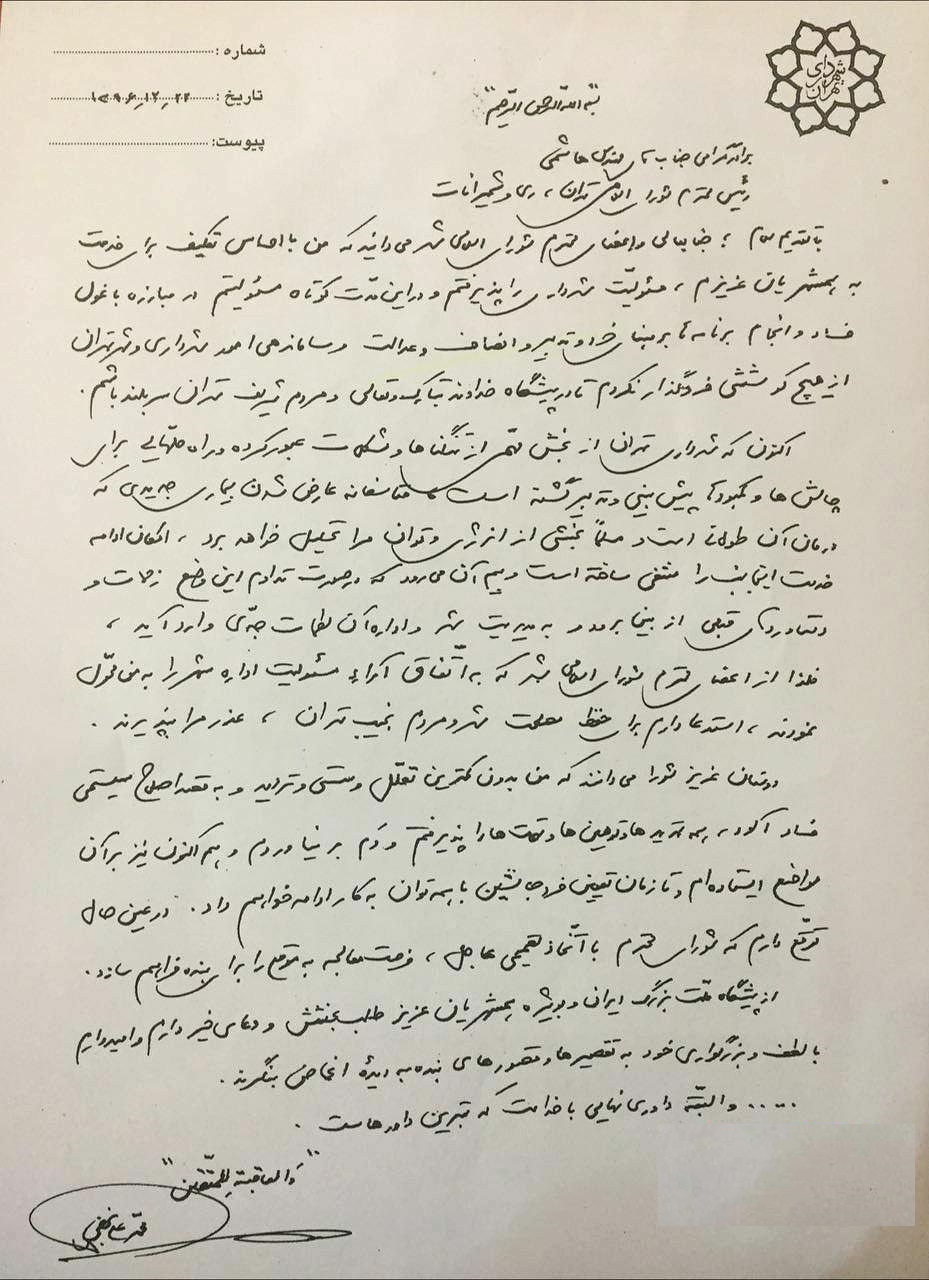 شهرداری تهران
شماره :
تاریخ : ۱۳۹۶،۱۲،۲۲
پیوست:
"بسم الله الرحمن الرحیم"
برادر گرامی جناب آقای مهندس هاشمی
رئیس محترم شورای اسلامی تهران، ری و شمیرانات
با تقدیم سلام ؛ جنابعالی و اعضای محترم شورای اسلامی شهر می‌دانید که من با احساس تکلیف برای خدمت
به همشهریان عزیزم ، مسئولیّت شهرداری را پذیرفتم و در این مدّت کوتاه مسئولیتم در مبارزه با غول
فساد و انجام برنامه‌ها بر مبنای خرد و تدبیر و انصاف و عدالت و ساماندهی امور شهرداری و شهر تهران
از هیچ کوششی فروگذار نکردم تا در پیشگاه خداوند تبارک و تعالی و مردم شریف تهران سربلند باشم.
اکنون که شهرداری تهران از بخش مهمّی از تنگناها و مشکلات عبور کرده و راه حلّهایی برای
چالش ها و کمبودها پیش بینی و تدبیر گشته است ، متأسفانه عارض شدن بیماری جدیدی که
درمان آن طولانی است و مسلماً بخشی از انرژی و توان مرا تحلیل خواهد برد ، امکان ادامه
خدمت اینجانب را منتفی ساخته است و بیم آن می‌رود که در صورت تداوم این وضع زحمات و
دستاوردهای قبلی از بین برود و به مدیریت شهر و اداره آن لطمات جدّی وارد آید ،
فلذا از اعضای محترم شورای اسلامی شهر که به اتّفاق آراء مسئولیت اداره شهر را به من محوّل
نمودند ، استدعا دارم برای حفظ مصلحت شهر و مردم نجیب تهران ، عذر مرا بپذیرند .
دوستان عزیز شورا می‌دانند که من بدون کمترین تعلّل و سستی و تردید و به قصد اصلاح سیستمی
فساد آلود، همه تهدیدها و توهین ها و تهمت ها را پذیرفتم و دَم بر نیاوردم و هم اکنون نیز بر آن
مواضع ایستاده‌ام و تا زمان تعیین فرد جانشین با همه توان به کار ادامه خواهم داد. در عین حال
توقّع دارم که شورای محترم با اتّخاذ تصمیمی عاجل ، فرصت معالجه به موقع را برای بنده فراهم سازد.
از پیشگاه ملّت بزرگ ایران و بویژه همشهریان عزیز طلب بخشش و دعای خیر دارم و امیدوارم
با لطف و بزرگواری خود به تقصیرها و قصورهای بنده به دیدهٔ اغماض بنگرند.
..... و البتّه داوری نهایی با خداست که بهترین داورهاست .
"وَالعاقبة لِلمتّقین"
محمّد علی نجفی